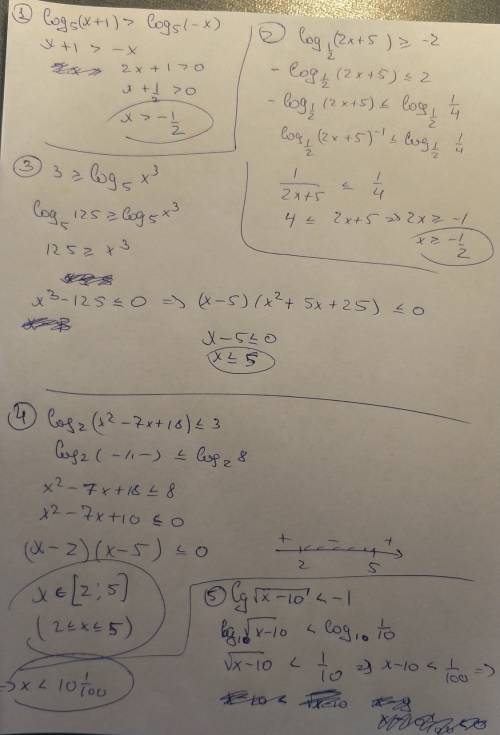 ① log₅(x+1) > log₅(-x)
x+1 > -x
2x+1>0
x+½>0
x>-½
② log_½(2x+5) ≥ -2
-log_½(2x+5) ≤ 2
-log_½(2x+5) ≤ log_½ ¼
log_½(2x+5)⁻¹ ≤ log_½ ¼
1/(2x+5) ≤ 1/4
4 ≤ 2x+5 => 2x ≥ -1
x ≥ -½
③ 3 ≥ log₅ x³
log₅ 125 ≥ log₅ x³
125 ≥ x³
x³-125 ≤ 0 => (x-5)(x²+5x+25) ≤ 0
x-5 ≤ 0
x ≤ 5
④ log₂(x²-7x+18) ≤ 3
log₂(-〃-) ≤ log₂ 8
x²-7x+18 ≤ 8
x²-7x+10 ≤ 0
(x-2)(x-5) ≤ 0
+ - +
2 5
x ∈ [2;5]
(2 ≤ x ≤ 5)
⑤ lg√(x-10) < -1
log₁₀√(x-10) < log₁₀ 1/10
√(x-10) < 1/10 => x-10 < 1/100 =>
=> x < 10 1/100